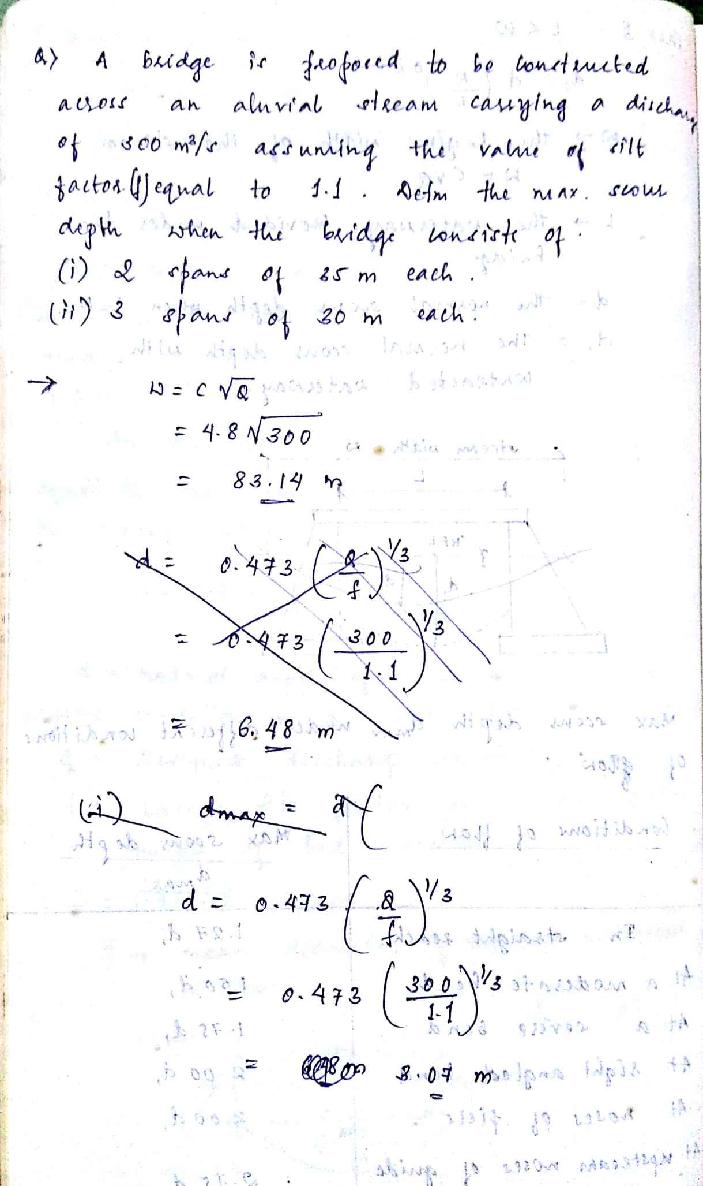 Q) A bridge is proposed to be constructed
across an aluvial stream carrying a discharge
of 300 m³/s assuming the value of silt
factor (f) equal to 1.1. Detm the max. scour
depth when the bridge consists of:
(i) 2 spans of 35 m each.
(ii) 3 spans of 30 m each.
→ W = C √Q
= 4.8 √300
= 83.14 m
d = 0.473 (Q/f)^1/3
= 0.473 (300/1.1)^1/3
= 6.48 m
(i) dmax = d (
d = 0.473 (Q/f)^1/3
= 0.473 (300/1.1)^1/3
= 3.07 m